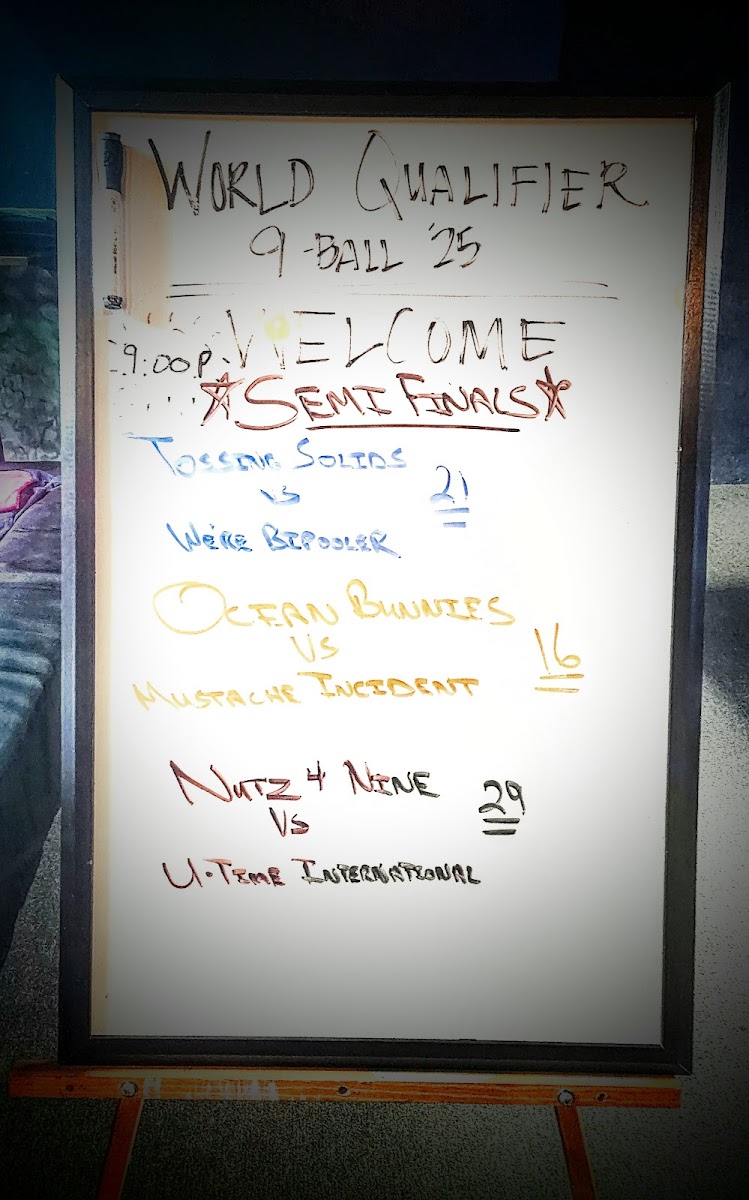 WORLD QUALIFIER
9-BALL '25
WELCOME
9:00P.
SEMI FINALS
TOSSING SOLIDS
VS
21
WE'RE BIPOOLER
OCEAN BUNNIES
VS
16
MUSTACHE INCIDENT
NUTZ 4 NINE
VS
29
U-TIME INTERNATIONAL